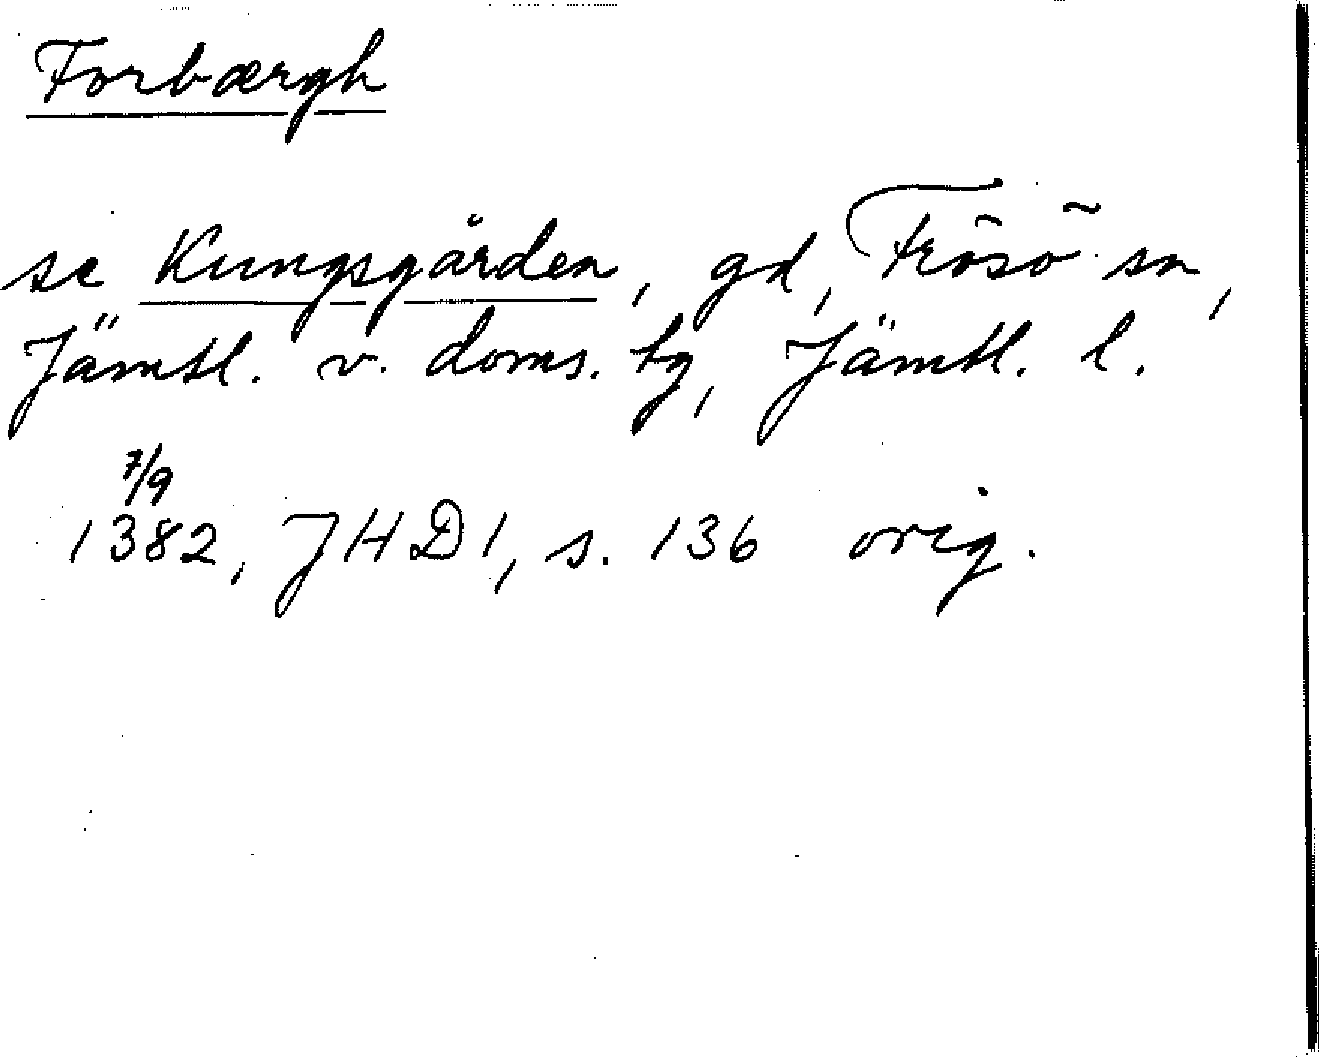 Forbærgh
se Kungsgården, gd, Frösö sn,
Jämtl. v. doms. tg, Jämtl. l.
7/9
1382, JHD 1, s. 136 orig.